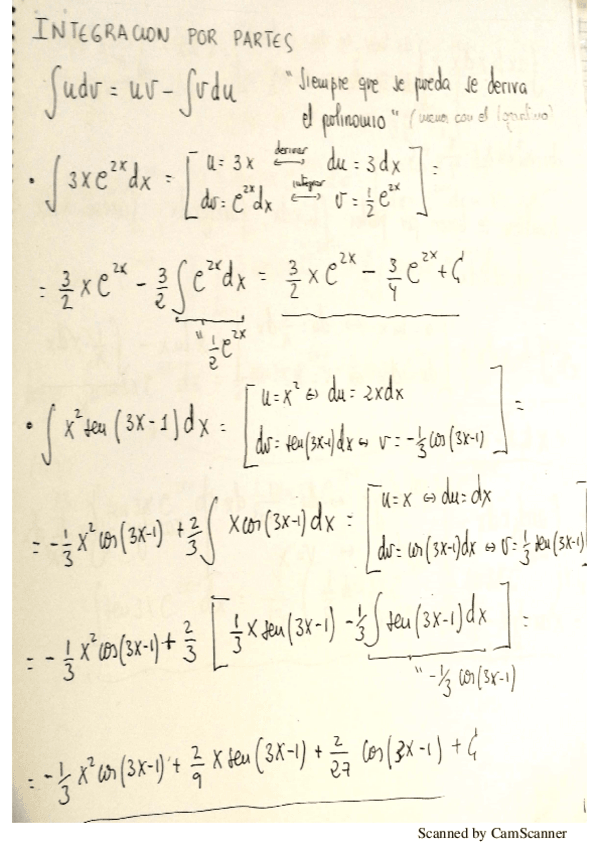 INTEGRACION POR PARTES
∫udv = uv - ∫vdu "Siempre que se pueda se deriva
el polinomio" (menos con el logaritmo)
• ∫3xe^{2x}dx = [u = 3x ⟷ derivar du = 3dx
dv = e^{2x}dx ⟷ integrar v = 1/2 e^{2x}] =
= 3/2 xe^{2x} - 3/2 ∫e^{2x}dx = 3/2 xe^{2x} - 3/4 e^{2x} + C
" 1/2 e^{2x}
• ∫x² sen(3x-1)dx = [u = x² ⇔ du = 2xdx
dv = sen(3x-1)dx ⇔ v = -1/3 cos(3x-1)] =
= -1/3 x² cos(3x-1) + 2/3 ∫x cos(3x-1)dx = [u = x ⇔ du = dx
dv = cos(3x-1)dx ⇔ v = 1/3 sen(3x-1)]
= -1/3 x² cos(3x-1) + 2/3 [1/3 x sen(3x-1) - 1/3 ∫sen(3x-1)dx] =
" -1/3 cos(3x-1)
= -1/3 x² cos(3x-1) + 2/9 x sen(3x-1) + 2/27 cos(3x-1) + C
Scanned by CamScanner